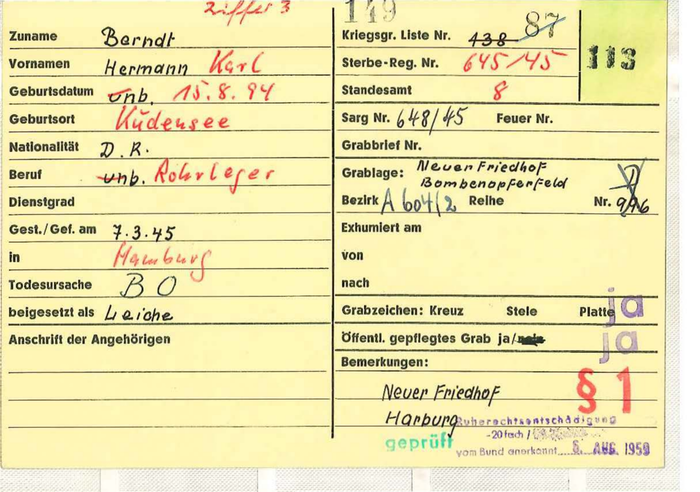 Ziffer 3
149
Zuname Berndt
Kriegsgr. Liste Nr. 138 87
113
Vornamen Hermann Karl
Sterbe-Reg. Nr. 645/45
Geburtsdatum unb. 15.8.94
Standesamt 8
Geburtsort Kudensee
Sarg Nr. 648/45 Feuer Nr.
Nationalität D.R.
Grabbrief Nr.
Beruf unb. Rohrleger
Grablage: Neuer Friedhof
Bombenopferfeld
Dienstgrad
Bezirk A 604/2 Reihe Nr.
Gest./Gef. am 7.3.45
Exhumiert am
in Hamburg
von
Todesursache BO
nach
beigesetzt als Leiche
Grabzeichen: Kreuz Stele Platte ja
Anschrift der Angehörigen
Öffentl. gepflegtes Grab ja/nein ja
Bemerkungen:
§ 1
Neuer Friedhof
Harburg
Ruherechtsentschädigung
geprüft
-20fach /
vom Bund anerkannt 6. AUG. 1959